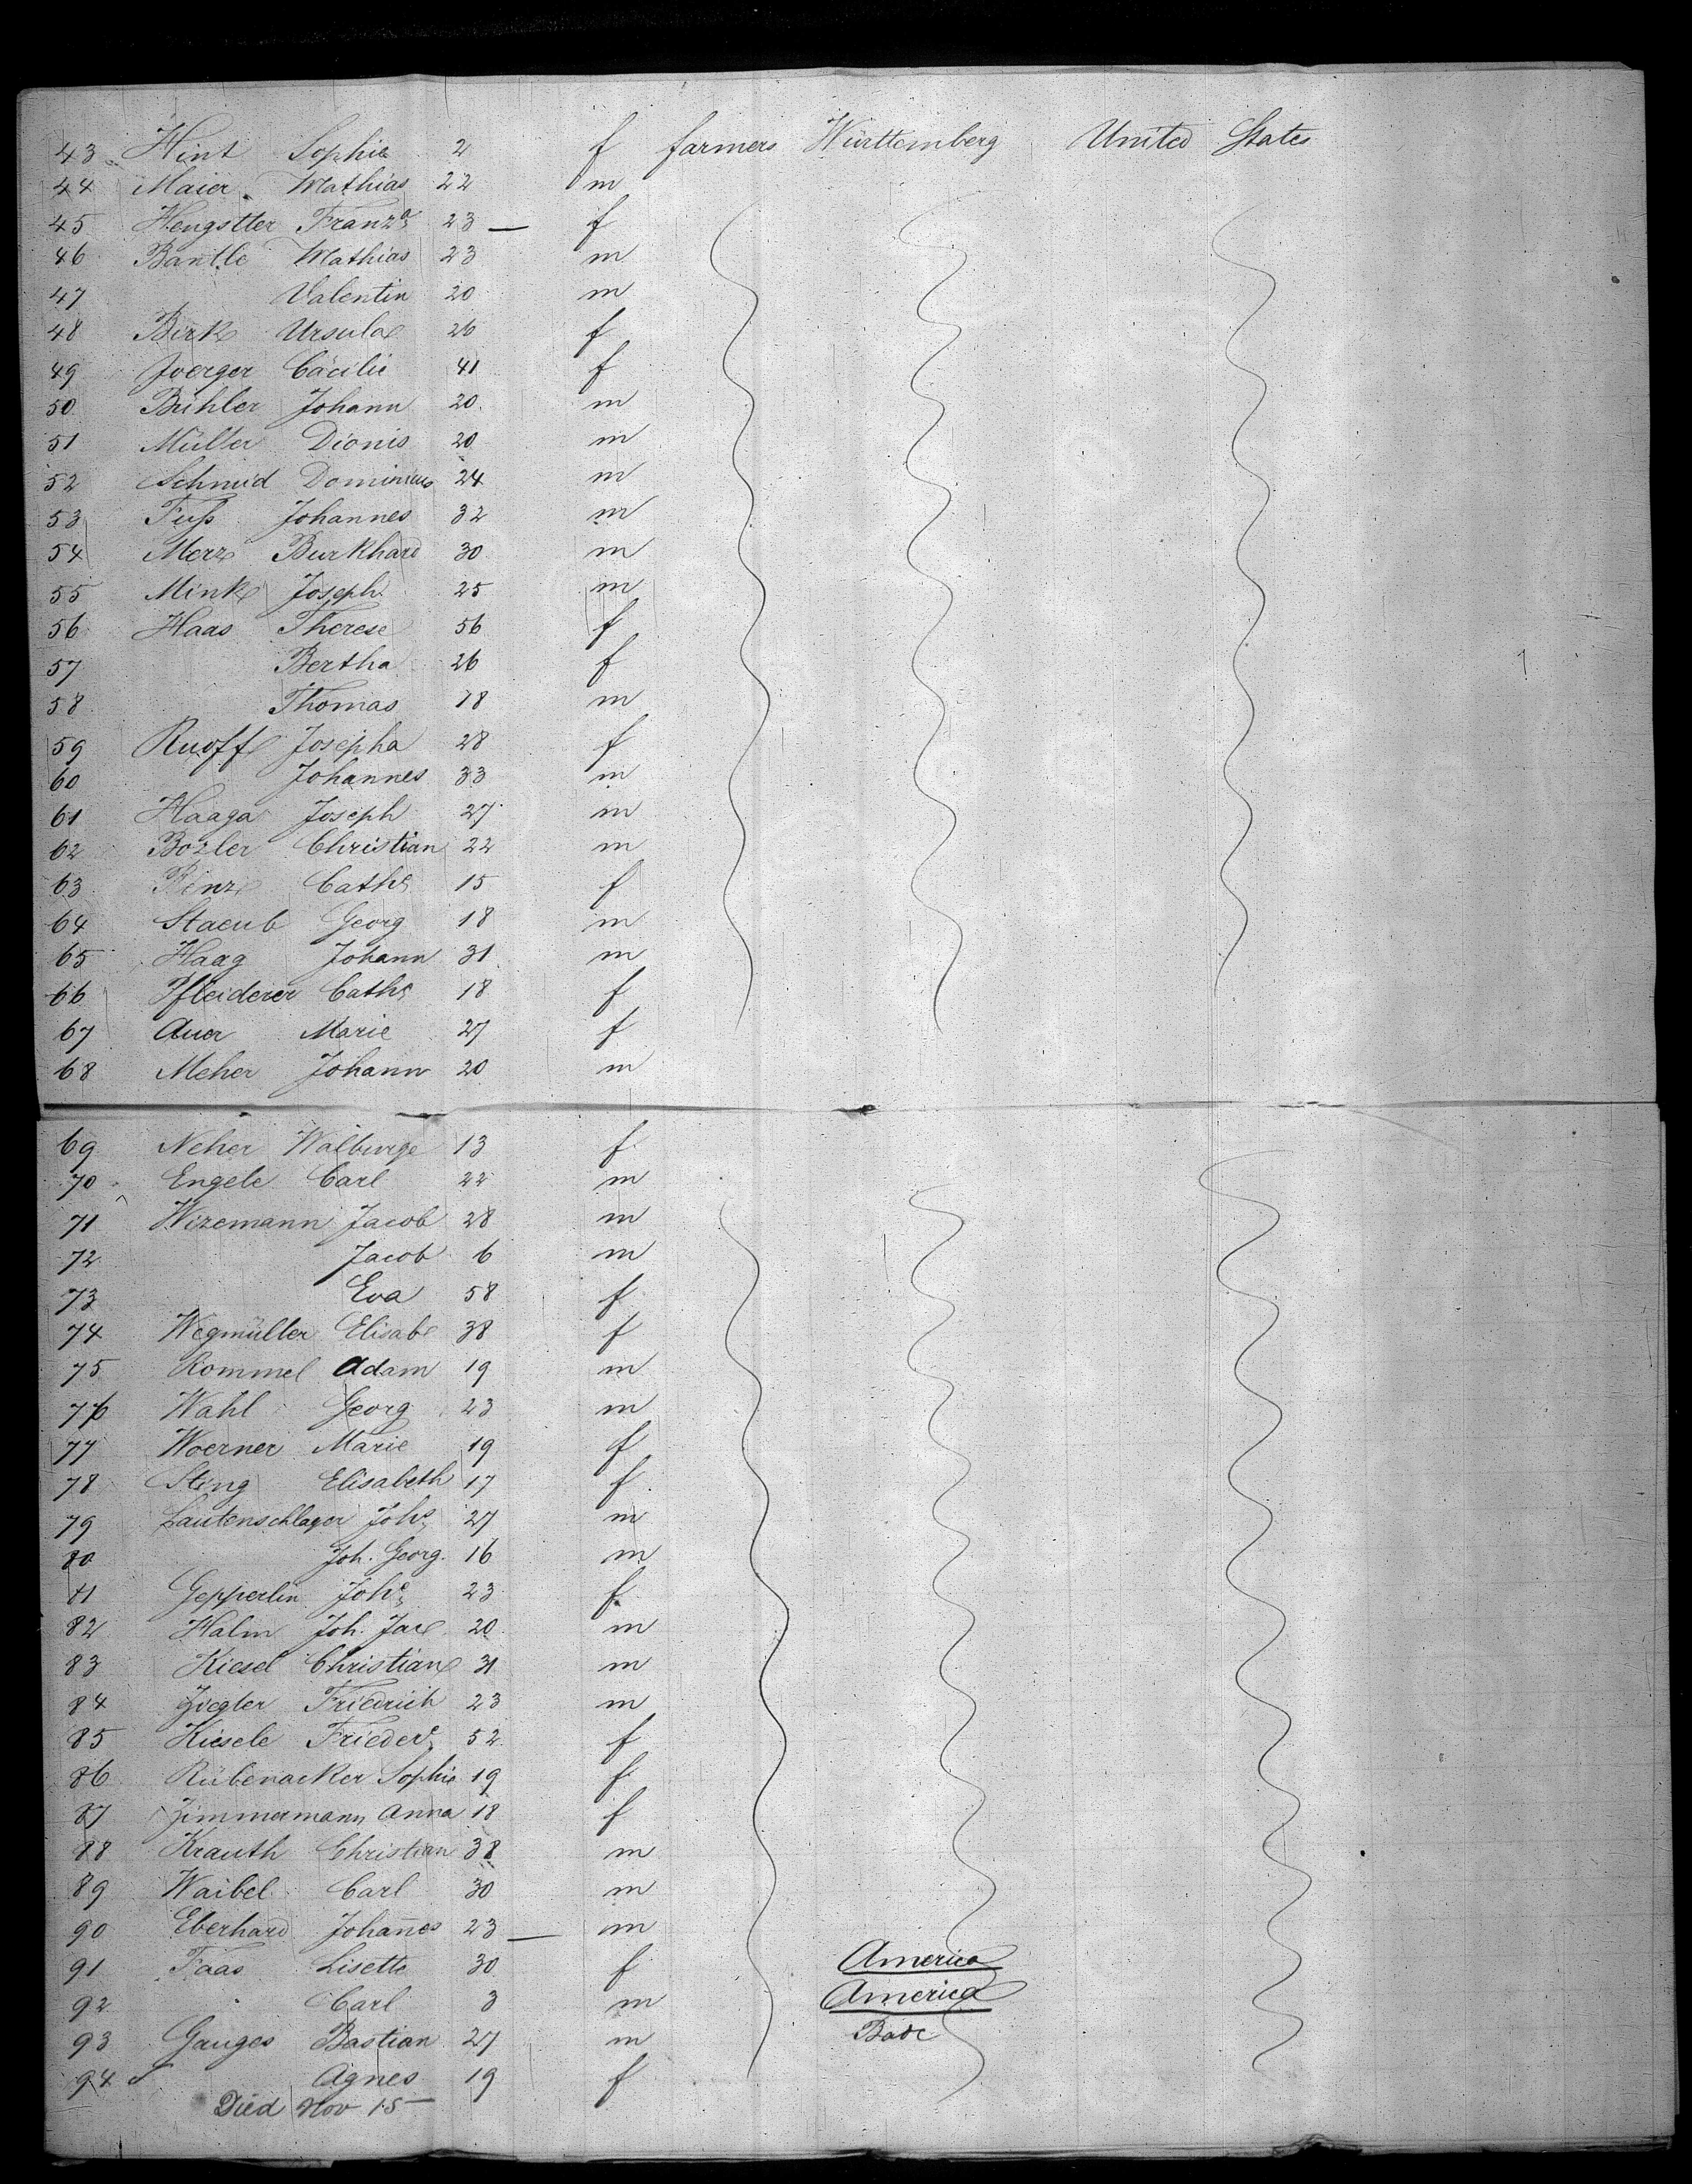 43 Hint Sophie 2 f farmers Württemberg United States
44 Maier Mathias 22 m
45 Hengstter Franza 23 — f
46 Bantle Mathias 23 m
47 Valentin 20 m
48 Birk Ursula 26 f
49 Joerger Cäcilie 41 f
50 Bühler Johann 20 m
51 Müller Dionis 20 m
52 Schmid Dominicus 24 m
53 Fuß Johannes 32 m
54 Merz Burkhard 30 m
55 Mink Joseph 25 m
56 Haas Therese 56 f
57 Bertha 26 f
58 Thomas 18 m
59 Ruoff Josepha 28 f
60 Johannes 33 m
61 Haaga Joseph 27 m
62 Bozler Christian 22 m
63 Benz Cathe 15 f
64 Staeub Georg 18 m
65 Haag Johann 31 m
66 Pfleiderer Cathe 18 f
67 Auer Marie 27 f
68 Meher Johann 20 m
69 Neher Walburge 13 f
70 Engele Carl 22 m
71 Wizemann Jacob 28 m
72 Jacob 6 m
73 Eva 58 f
74 Wegmüller Elisabe 38 f
75 Rommel Adam 19 m
76 Wahl Georg 23 m
77 Woerner Marie 19 f
78 Sting Elisabeth 17 f
79 Lautenschlager Johs 27 m
80 Joh. Georg. 16 m
81 Gepperlin Johe 23 f
82 Halm Joh. Jac 20 m
83 Kiesel Christian 31 m
84 Ziegler Friedrich 23 m
85 Kiesele Friedere 52 f
86 Rübenacker Sophie 19 f
87 Zimmermann Anna 18 f
88 Krauth Christian 38 m
89 Waibel Carl 30 m
90 Eberhard Johañes 23 — m
91 Faas Lisette 30 f America
92 " Carl 3 m America
93 Gauges Bastian 27 m Bade
94 Agnes 19 f
Died Nov 15